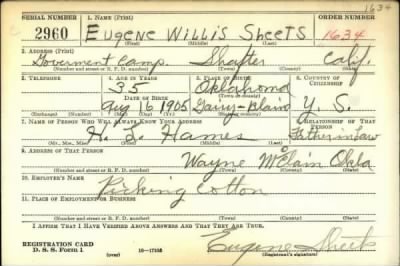 1634
SERIAL NUMBER 1. NAME (Print) ORDER NUMBER
2960 Eugene Willis Sheets 1634
(First) (Middle) (Last)
2. ADDRESS (Print)
Goverment Camp. Shafter Calif.
(Number and street or R. F. D. number) (Town) (County) (State)
3. TELEPHONE 4. AGE IN YEARS 5. PLACE OF BIRTH 6. COUNTRY OF CITIZENSHIP
35 Oklahoma
DATE OF BIRTH
Aug 16 1905 Blain U. S.
(Exchange) (Number) (Mo.) (Day) (Yr.) (Town or county) (State or country)
7. NAME OF PERSON WHO WILL ALWAYS KNOW YOUR ADDRESS 8. RELATIONSHIP OF THAT PERSON
H. L. Hames Father in Law
(Mr., Mrs., Miss) (First) (Middle) (Last)
9. ADDRESS OF THAT PERSON
Wayne McClain Okla
(Number and street or R. F. D. number) (Town) (County) (State)
10. EMPLOYER'S NAME
Picking Cotton
11. PLACE OF EMPLOYMENT OR BUSINESS
(Number and street or R. F. D. number) (Town) (County) (State)
I AFFIRM THAT I HAVE VERIFIED ABOVE ANSWERS AND THAT THEY ARE TRUE.
REGISTRATION CARD
D. S. S. Form 1 (over) Eugene Sheets
(Registrant's signature)